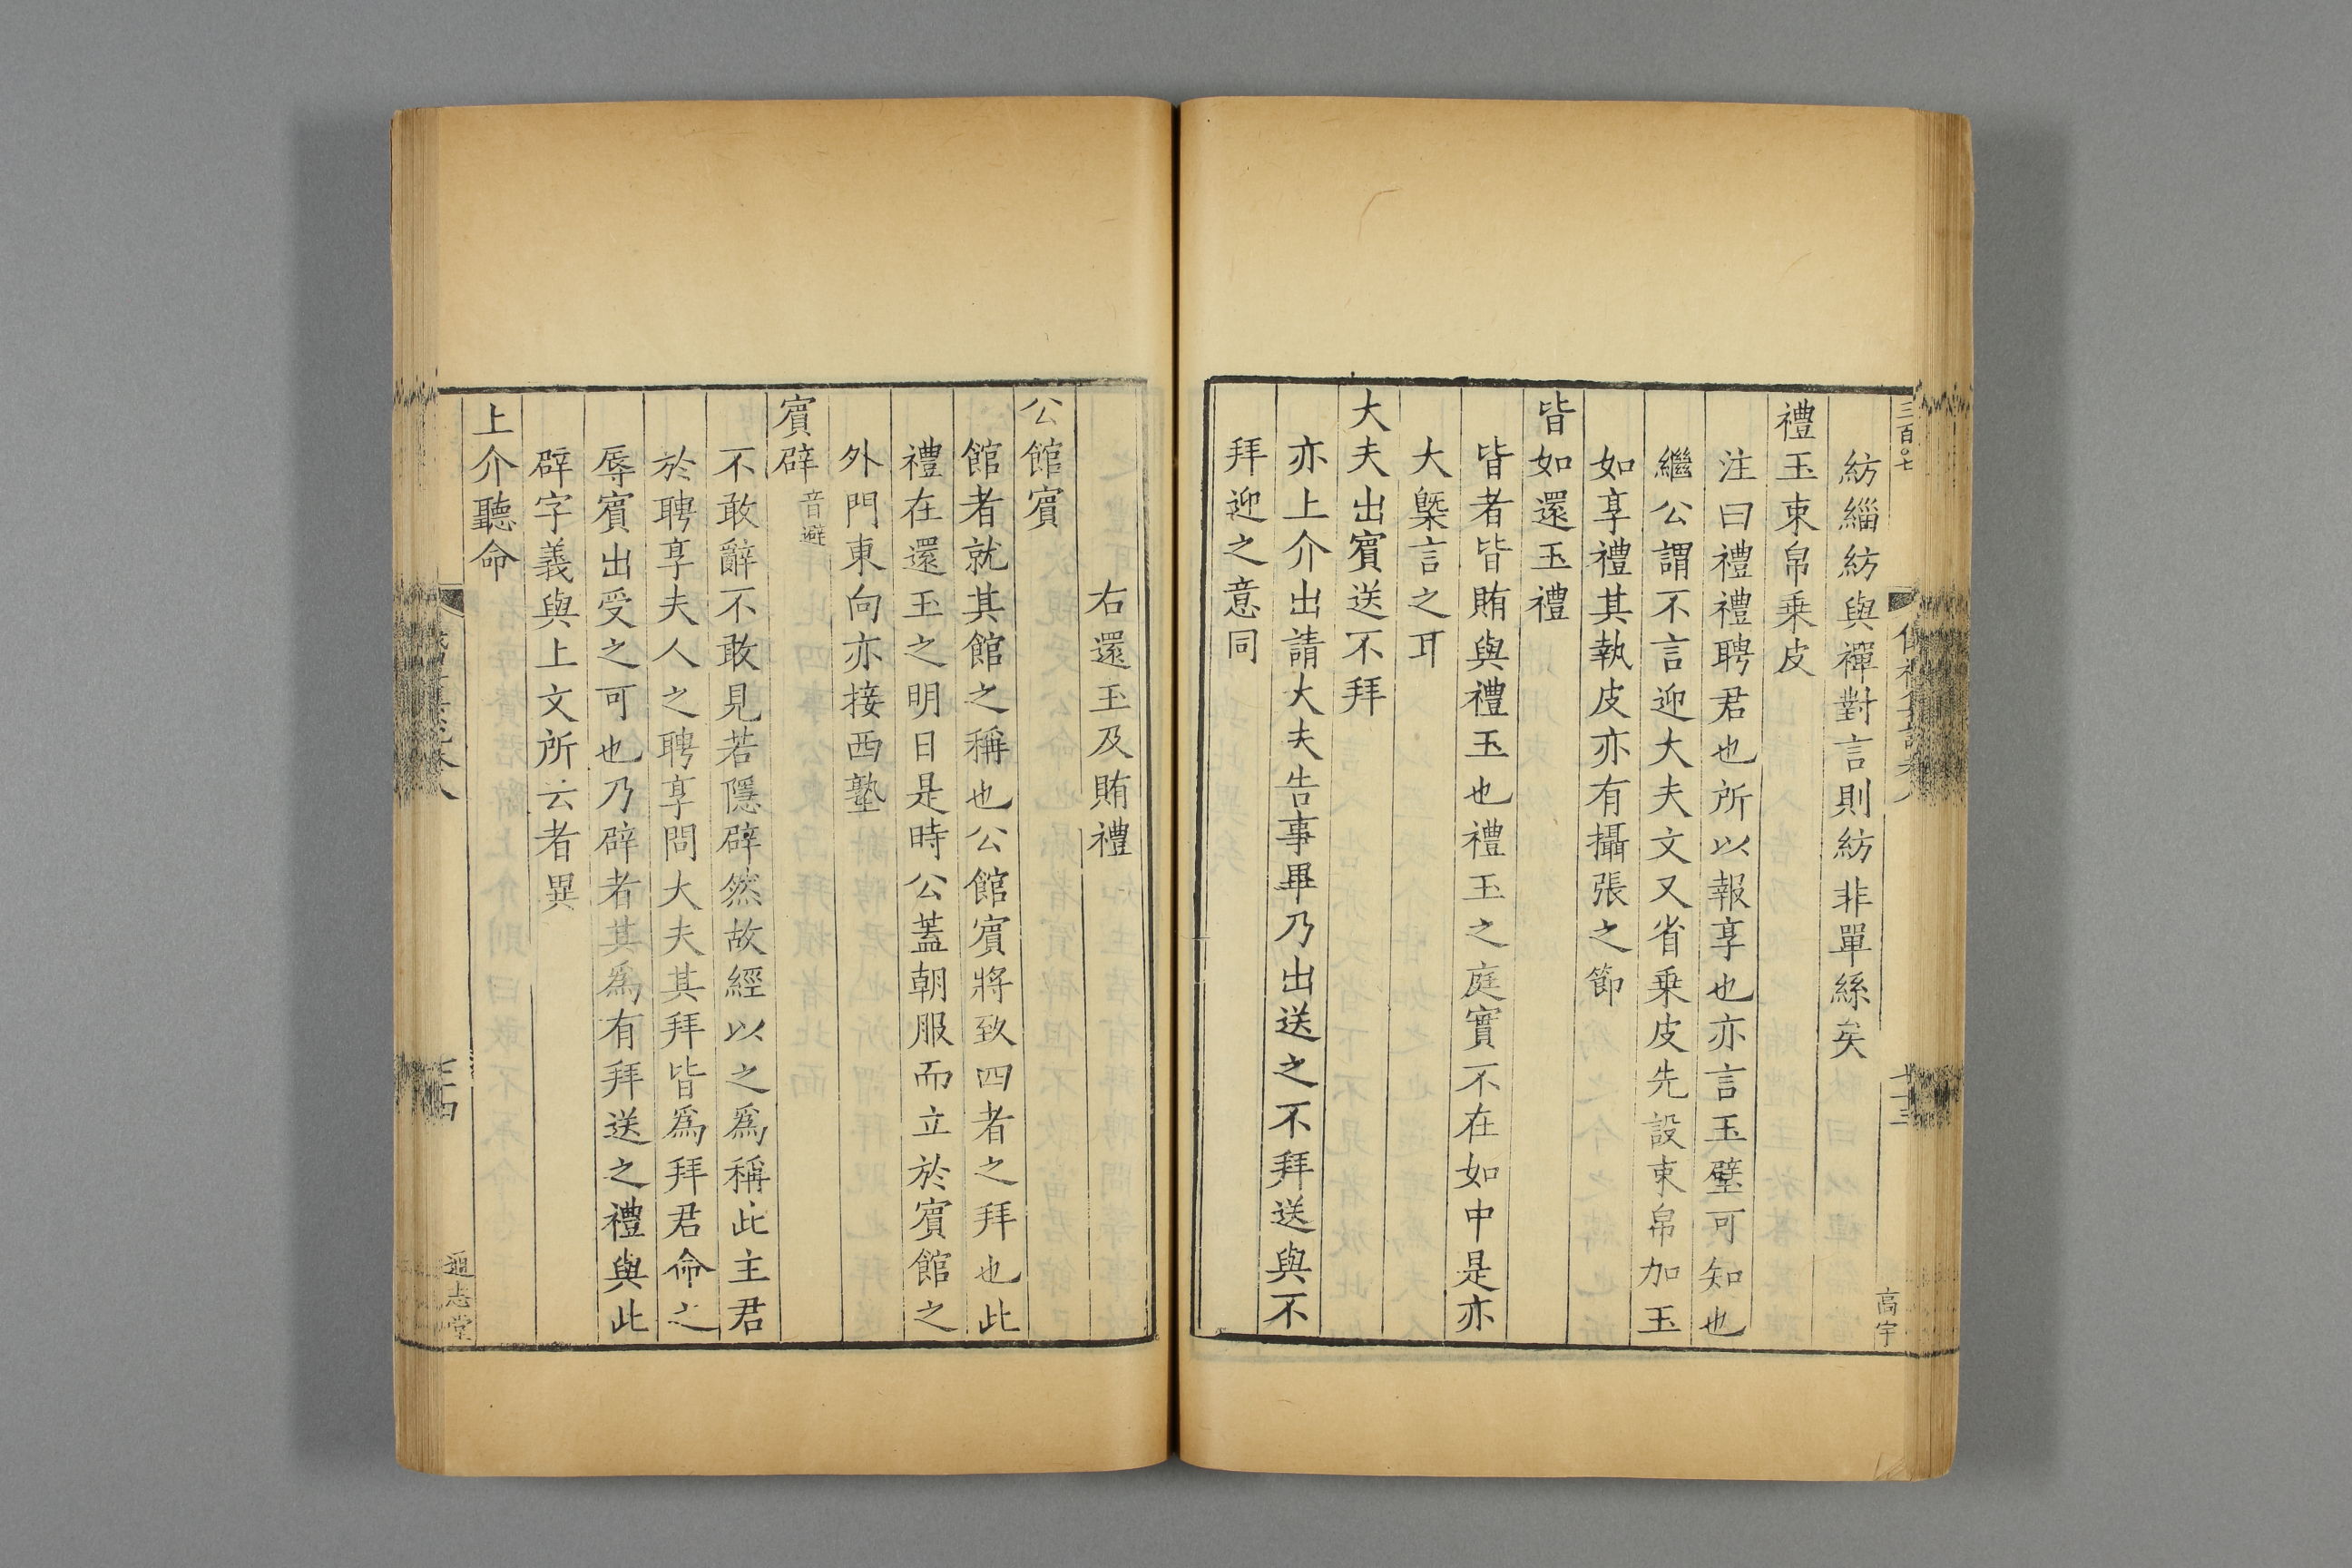 三百〇七
紡緇紡與禪對言則紡非單絲矣
禮玉束帛乗皮
注曰禮禮聘君也所以報享也亦言玉璧可知也
繼公謂不言迎大夫文又省乗皮先設束帛加玉
如享禮其執皮亦有攝張之節
皆如還玉禮
皆者皆賄與禮玉也禮玉之庭實不在如中是亦
大槩言之耳
大夫出賓送不拜
亦上介出請大夫告事畢乃出送之不拜送與不
拜迎之意同
高宇
右還玉及賄禮
公館賓
館者就其館之稱也公館賓將致四者之拜也此
禮在還玉之明日是時公蓋朝服而立於賓館之
外門東向亦接西塾
賓辟音避
不敢辭不敢見若隱辟然故經以之爲稱此主君
於聘享夫人之聘享問大夫其拜皆爲拜君命之
辱賓出受之可也乃辟者其爲有拜送之禮與此
辟字義與上文所云者異
上介聽命
通志堂